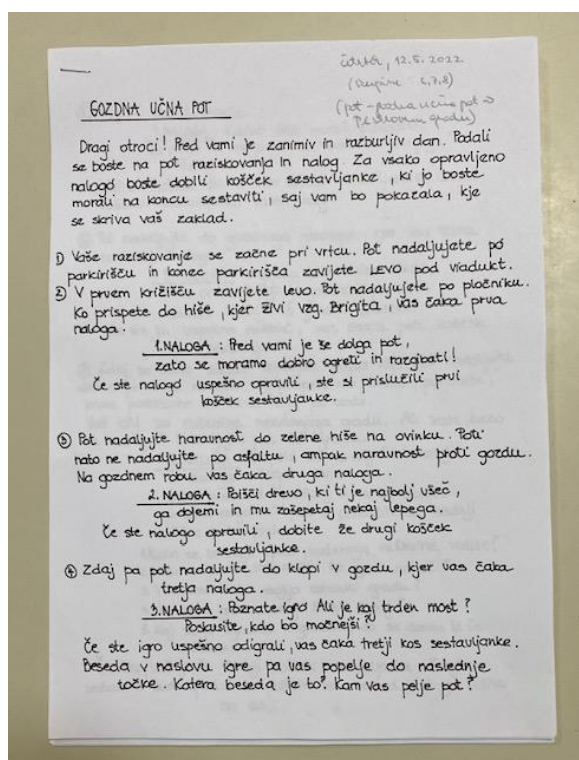 četrtek, 12.5.2022
(Skupine 6,7,8)
GOZDNA UČNA POT
Dragi otroci! Pred vami je zanimiv in razburljiv dan. Podali
se boste na pot raziskovanja in nalog. Za vsako opravljeno
nalogo boste dobili košček sestavljanke, ki jo boste
morali na koncu sestaviti, saj vam bo pokazala, kje
se skriva vaš zaklad.
1) Vaše raziskovanje se začne pri vrtcu. Pot nadaljujete po
parkirišču in konec parkirišča zavijete LEVO pod viadukt.
2) V prvem križišču zavijete levo. Pot nadaljujete po pločniku.
Ko prispete do hiše, kjer živi vzg. Brigita, vas čaka prva
naloga.
1. NALOGA: Pred vami je še dolga pot,
zato se moramo dobro ogreti in razgibati!
Če ste nalogo uspešno opravili, ste si prislužili prvi
košček sestavljanke.
3) Pot nadaljujte naravnost do zelene hiše na ovinku. Poti
nato ne nadaljujte po asfaltu, ampak naravnost proti gozdu.
Na gozdnem robu vas čaka druga naloga.
2. NALOGA: Poišči drevo, ki ti je najbolj všeč,
ga objemi in mu zašepetaj nekaj lepega.
Če ste nalogo opravili, dobite že drugi košček
sestavljanke.
4) Zdaj pa pot nadaljujte do klopi v gozdu, kjer vas čaka
tretja naloga.
3. NALOGA: Poznate igro Ali je kaj trden most?
Poskusite, kdo bo močnejši?
Če ste igro uspešno odigrali, vas čaka tretji kos sestavljanke.
Beseda v naslovu igre pa vas popelje do naslednje
točke. Katera beseda je to? Kam vas pelje pot?